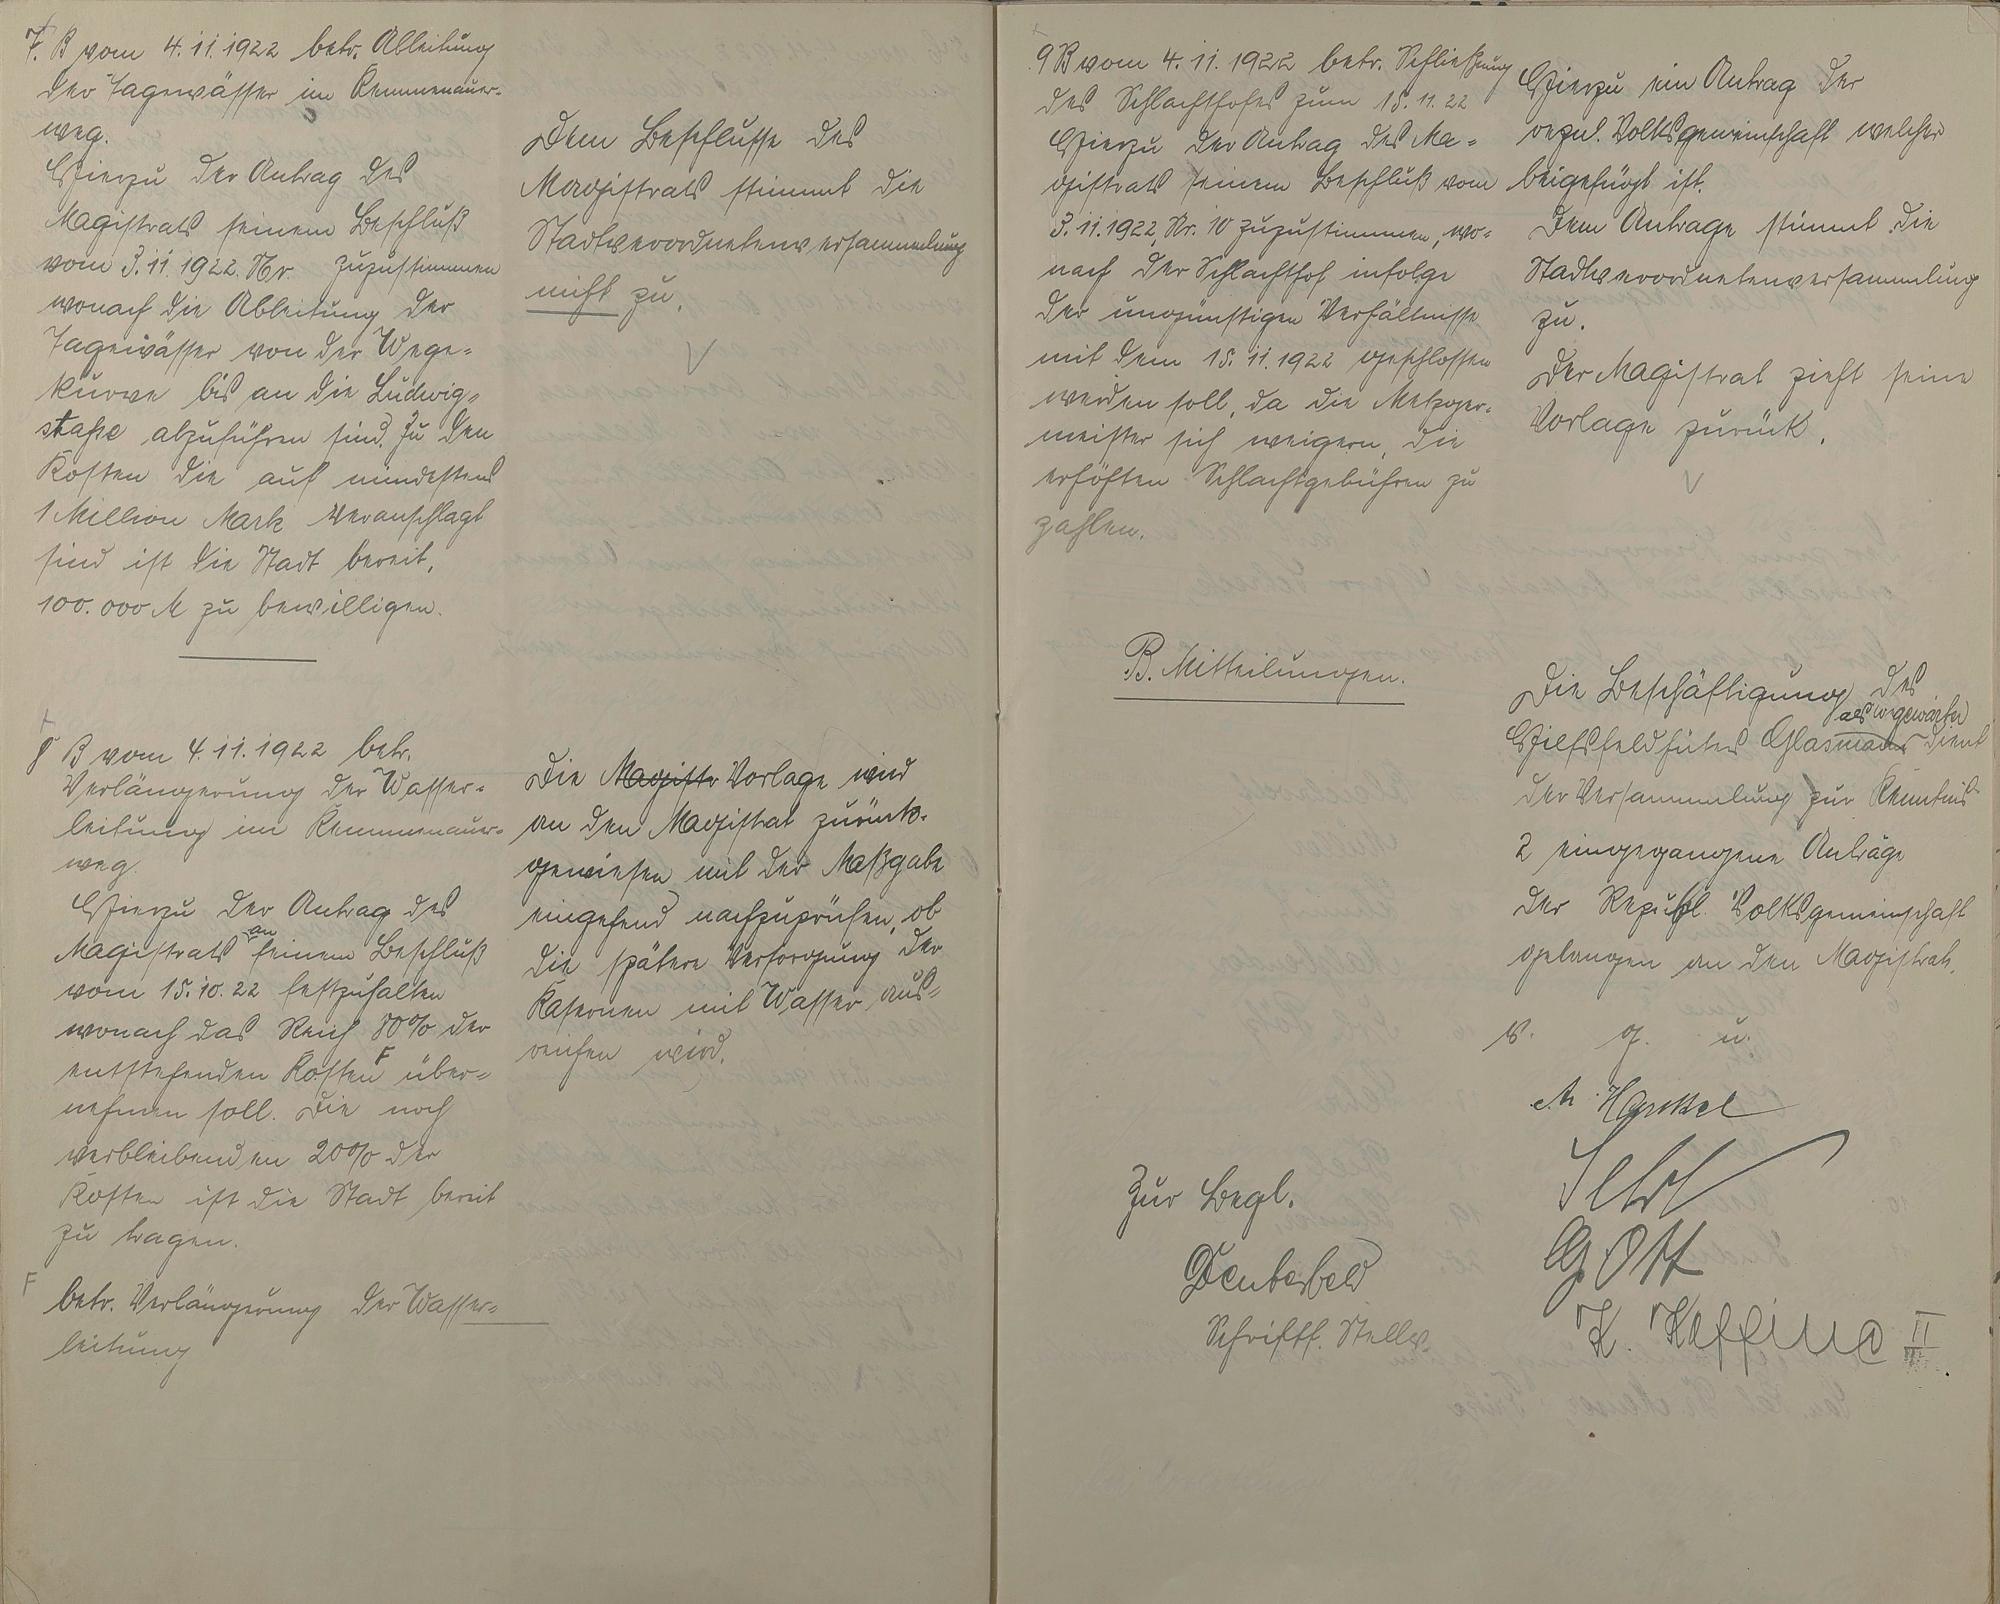 7. B vom 4.11.1922 betr. Ableitung
der Tagewässer im Kemmenauer-
weg.
Hierzu der Antrag des
Magistrats seinem Beschluß
vom 3.11.1922. Nr. zuzustimmen
wonach die Ableitung der
Tagewässer von der Wege-
kurve bis an die Ludwig-
staße abzuführen sind. Zu den
Kosten die auf mindestens
1 Million Mark veranschlagt
sind ist die Stadt bereit,
100.000 M zu bewilligen.
Dem Beschlusse des
Magistrats stimmt die
Stadtverordnetenversammlung
nicht zu.
8 B vom 4.11.1922 betr.
Verlängerung der Wasser-
leitung im Kemmenauer-
weg.
Hierzu der Antrag des
Magistrats an seinem Beschluß
vom 15.10.22 festzuhalten
wonach das Reich 80% der
entstehenden Kosten F über-
nehmen soll. Die noch
verbleibenden 20% der
Kosten ist die Stadt bereit
zu tragen.
F betr. Verlängerung der Wasser-
leitung
Die Magistr Vorlage wird
an den Magistrat zurück-
gewiesen mit der Maßgabe
eingehend nachzuprüfen, ob
die spätere Versorgung der
Kasernen mit Wasser aus-
reichen wird.
9 B vom 4.11.1922 betr. Schließung
des Schlachthofes zum 15.11.22
Hierzu der Antrag des Ma-
gistrats seinem Beschluß vom
3.11.1922, Nr. 10 zuzustimmen, wo-
nach der Schlachthof infolge
der ungünstigen Verhältnisse
mit dem 15.11.1922 geschlossen
werden soll, da die Metzger-
meister sich weigern, die
erhöhten Schlachtgebühren zu
zahlen.
Hierzu ein Antrag der
repul. Volksgemeinschaft welcher
beigefügt ist.
Dem Antrage stimmt die
Stadtverordnetenversammlung
zu.
Der Magistrat zieht seine
Vorlage zurück.
B. Mitteilungen.
Die Beschäftigung des
als
Hilfsfeldhüters Glasmann dient
der Versammlung zur Kenntnis
2 eingegangene Anträge
der Republ. Volksgemeinschaft
gelangen an den Magistrat.
v. g. u.
Zur Begl.
Schriftf. Stellv.
G Ott